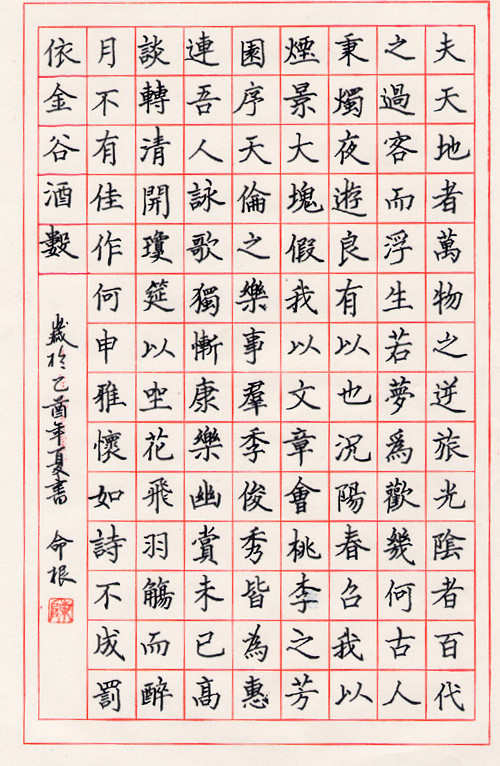 夫天地者萬物之逆旅光陰者百代
之過客而浮生若夢爲歡幾何古人
秉燭夜遊良有以也況陽春召我以
煙景大塊假我以文章會桃李之芳
園序天倫之樂事羣季俊秀皆為惠
連吾人詠歌獨慚康樂幽賞未已高
談轉清開瓊筵以坐花飛羽觴而醉
月不有佳作何申雅懷如詩不成罰
依金谷酒數
歲於乙酉年夏書 命根